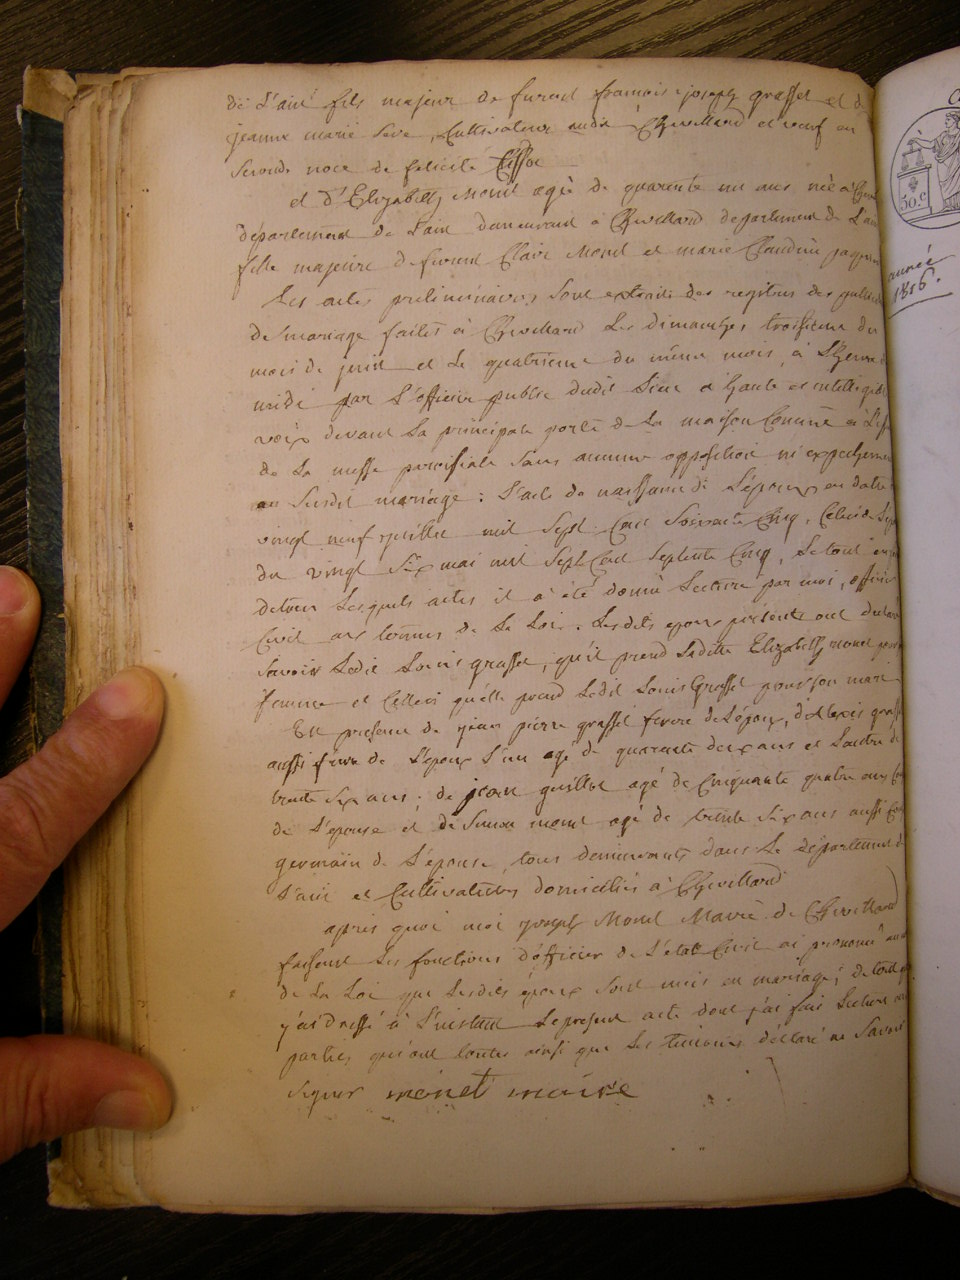 de L'ain fils majeur de furent francois joseph grassel et d
jeanne marie seve, Cultivateur audit Chevillard et veuf en
Seconde noce de felicité
et D'Elizabeth Monet agé de quarante un ans née à Chevil
département de L'ain demeurant à Chevillard département de L'ain
fille majeure de furent Claire Monet et marie Claudine
Les actes preliminaires sont extraits des registres des public
de mariage faites à Chevillard Les dimanches troisieme du
mois de juin et Le quatrieme du même mois, à L'heure d
midi par L'officier public dudit Lieu a haute et intelligible
voix devant La principale porte de La maison Commune à L'iss
de La messe paroissiale sans aucune opposition ni expechemen
au susdit mariage : L'acte de naissance de L'époux en date
vingt neuf juillet mil sept Cent soixante Cinq, Celui de L'épo
du vingt Six mai mil Sept Cent Septente Cinq, Le tout en
de tous Lesquels actes il a été donné Lecture par moi, officier
Civil aux termes de La Loi. Lesdits epoux présents ont declaré
Savoir Ledit Louis grassel, qu'il prend Ladite Elizabeth monet pour
femme et Celleci qu'elle prend Ledit Louis Grassel pour son mari
En presence de jean pierre grassel frere de L'époux, d'Alexis grasse
aussi frere de L'époux L'un agé de quarante deux ans et L'autre de
trente six ans ; de jean guillot agé de Cinquante quatre ans Cou
de L'epouse et de Simon monet agé de trente Six ans aussi Cou
germain de L'épouse, tous demeurants dans Le département d
L'ain et Cultivateurs domiciliés à Chevillard
après quoi moi joseph Monet Maire de Chevillard
faisant Les fonctions d'officier de L'état Civil ai prononcé au
de La Loi que Lesdits époux sont unis en mariage ; de tout
j'ai Dressé à L'instant Le present acte dont j'ai fait Lecture aux
parties qui ont toutes ainsi que Les temoins déclaré ne Savoir
signer monet maire
50.c
année
1816.